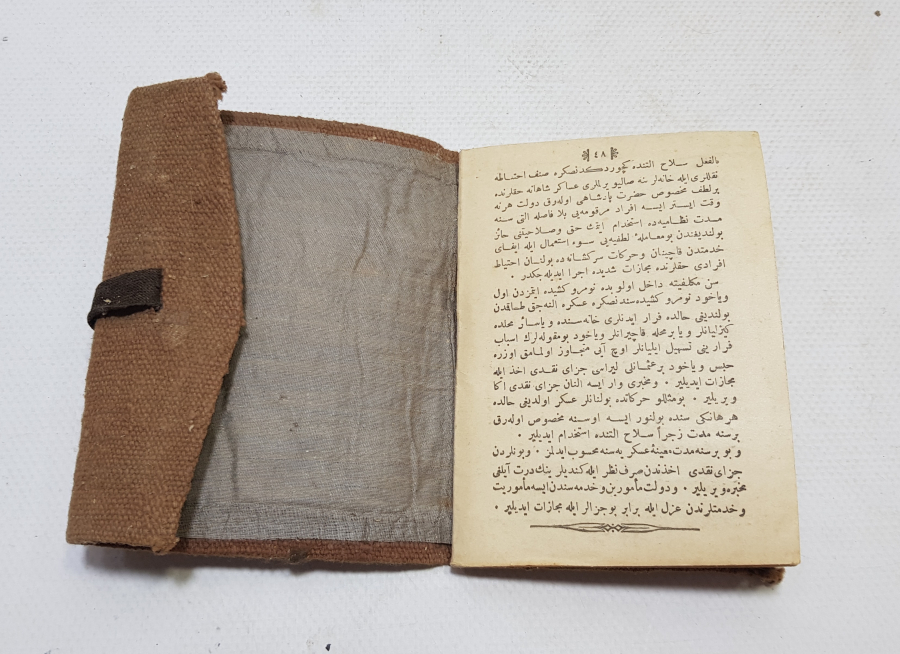 ٤٨
بالفعل سلاح التنده كچوردكدنصكره صنف احتياطه
نقللرى ايله خانه‌لرينه صاليويريلان عساكر شاهانه حقلرنده
برلطف مخصوص حضرت پادشاهى اوله‌رق دولت هرنه
وقت ايستر ايسه افراد مرقومه‌يى بلا فاصله التى سنه
مدت نظاميه‌ده استخدام ايتمك حق وصلاحيتنى حائز
بولنديغندن بومعاملهٔ لطفيه‌يى سوء استعمال ايله ايفاى
خدمتدن قاچينان وحركات سركشانه‌ده بولنان احتياط
افرادى حقلرنده مجازات شديده اجرا ايديله‌جكدر ٠
سن مكلفيته داخل اولوبده نومرو كشيده ايتمزدن اول
وياخود نومرو كشيده‌سندنصكره عسكره النه‌جق طاقمدن
بولنديغى حالده فرار ايدنلرى خانه‌سنده وياسائر محلده
كيزليانلر ويا برمحله قاچيرانلر وياخود بومقوله‌لرك اسباب
فرارينى تسهيل ايليانلر اوچ آيى متجاوز اولمامق اوزره
حبس وياخود برعثمانلى ليراسى جزاى نقدى اخذ ايله
مجازات ايديلير ٠ ومخبرى وار ايسه النان جزاى نقدى اكا
ويريلير ٠ بومثللو حركاتده بولنانلر عسكر اولديغى حالده
هر هانكى سنده بولنور ايسه اوسنه مخصوص اوله‌رق
برسنه مدت زجراً سلاح التنده استخدام ايديلير ٠
وبو برسنه مدت معينهٔ عسكريه‌سنه محسوب ايدلمز ٠ وبونلردن
جزاى نقدى اخذندن صرف نظر ايله كنديلرينك درت آيلغى
مخبره ويريلير ٠ ودولت مأمورين وخدمه‌سندن ايسه مأموريت
وخدمتلرندن عزل ايله برابر بوجزالر ايله مجازات ايديلير ٠